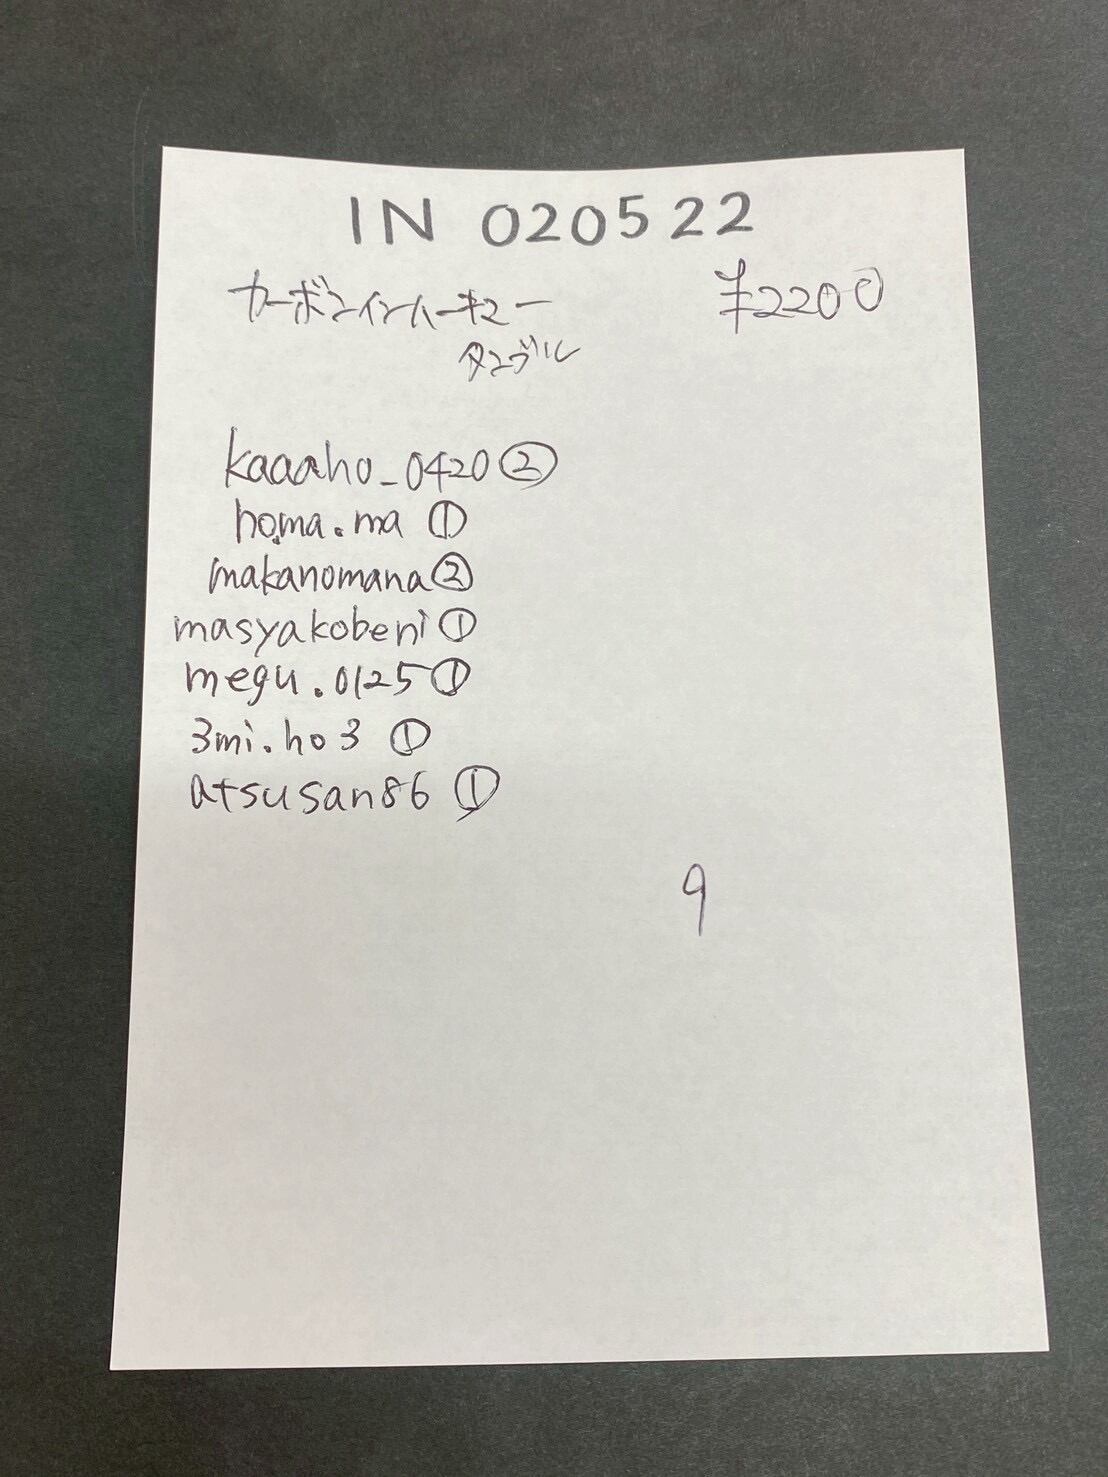 IN 020522
カーボンインハーキマー ¥2200
タンブル
kaaaho_0420 ②
homa.ma ①
makanomana ②
masyakobeni ①
megu.0125 ①
3mi.ho3 ①
atsusan86 ①
9